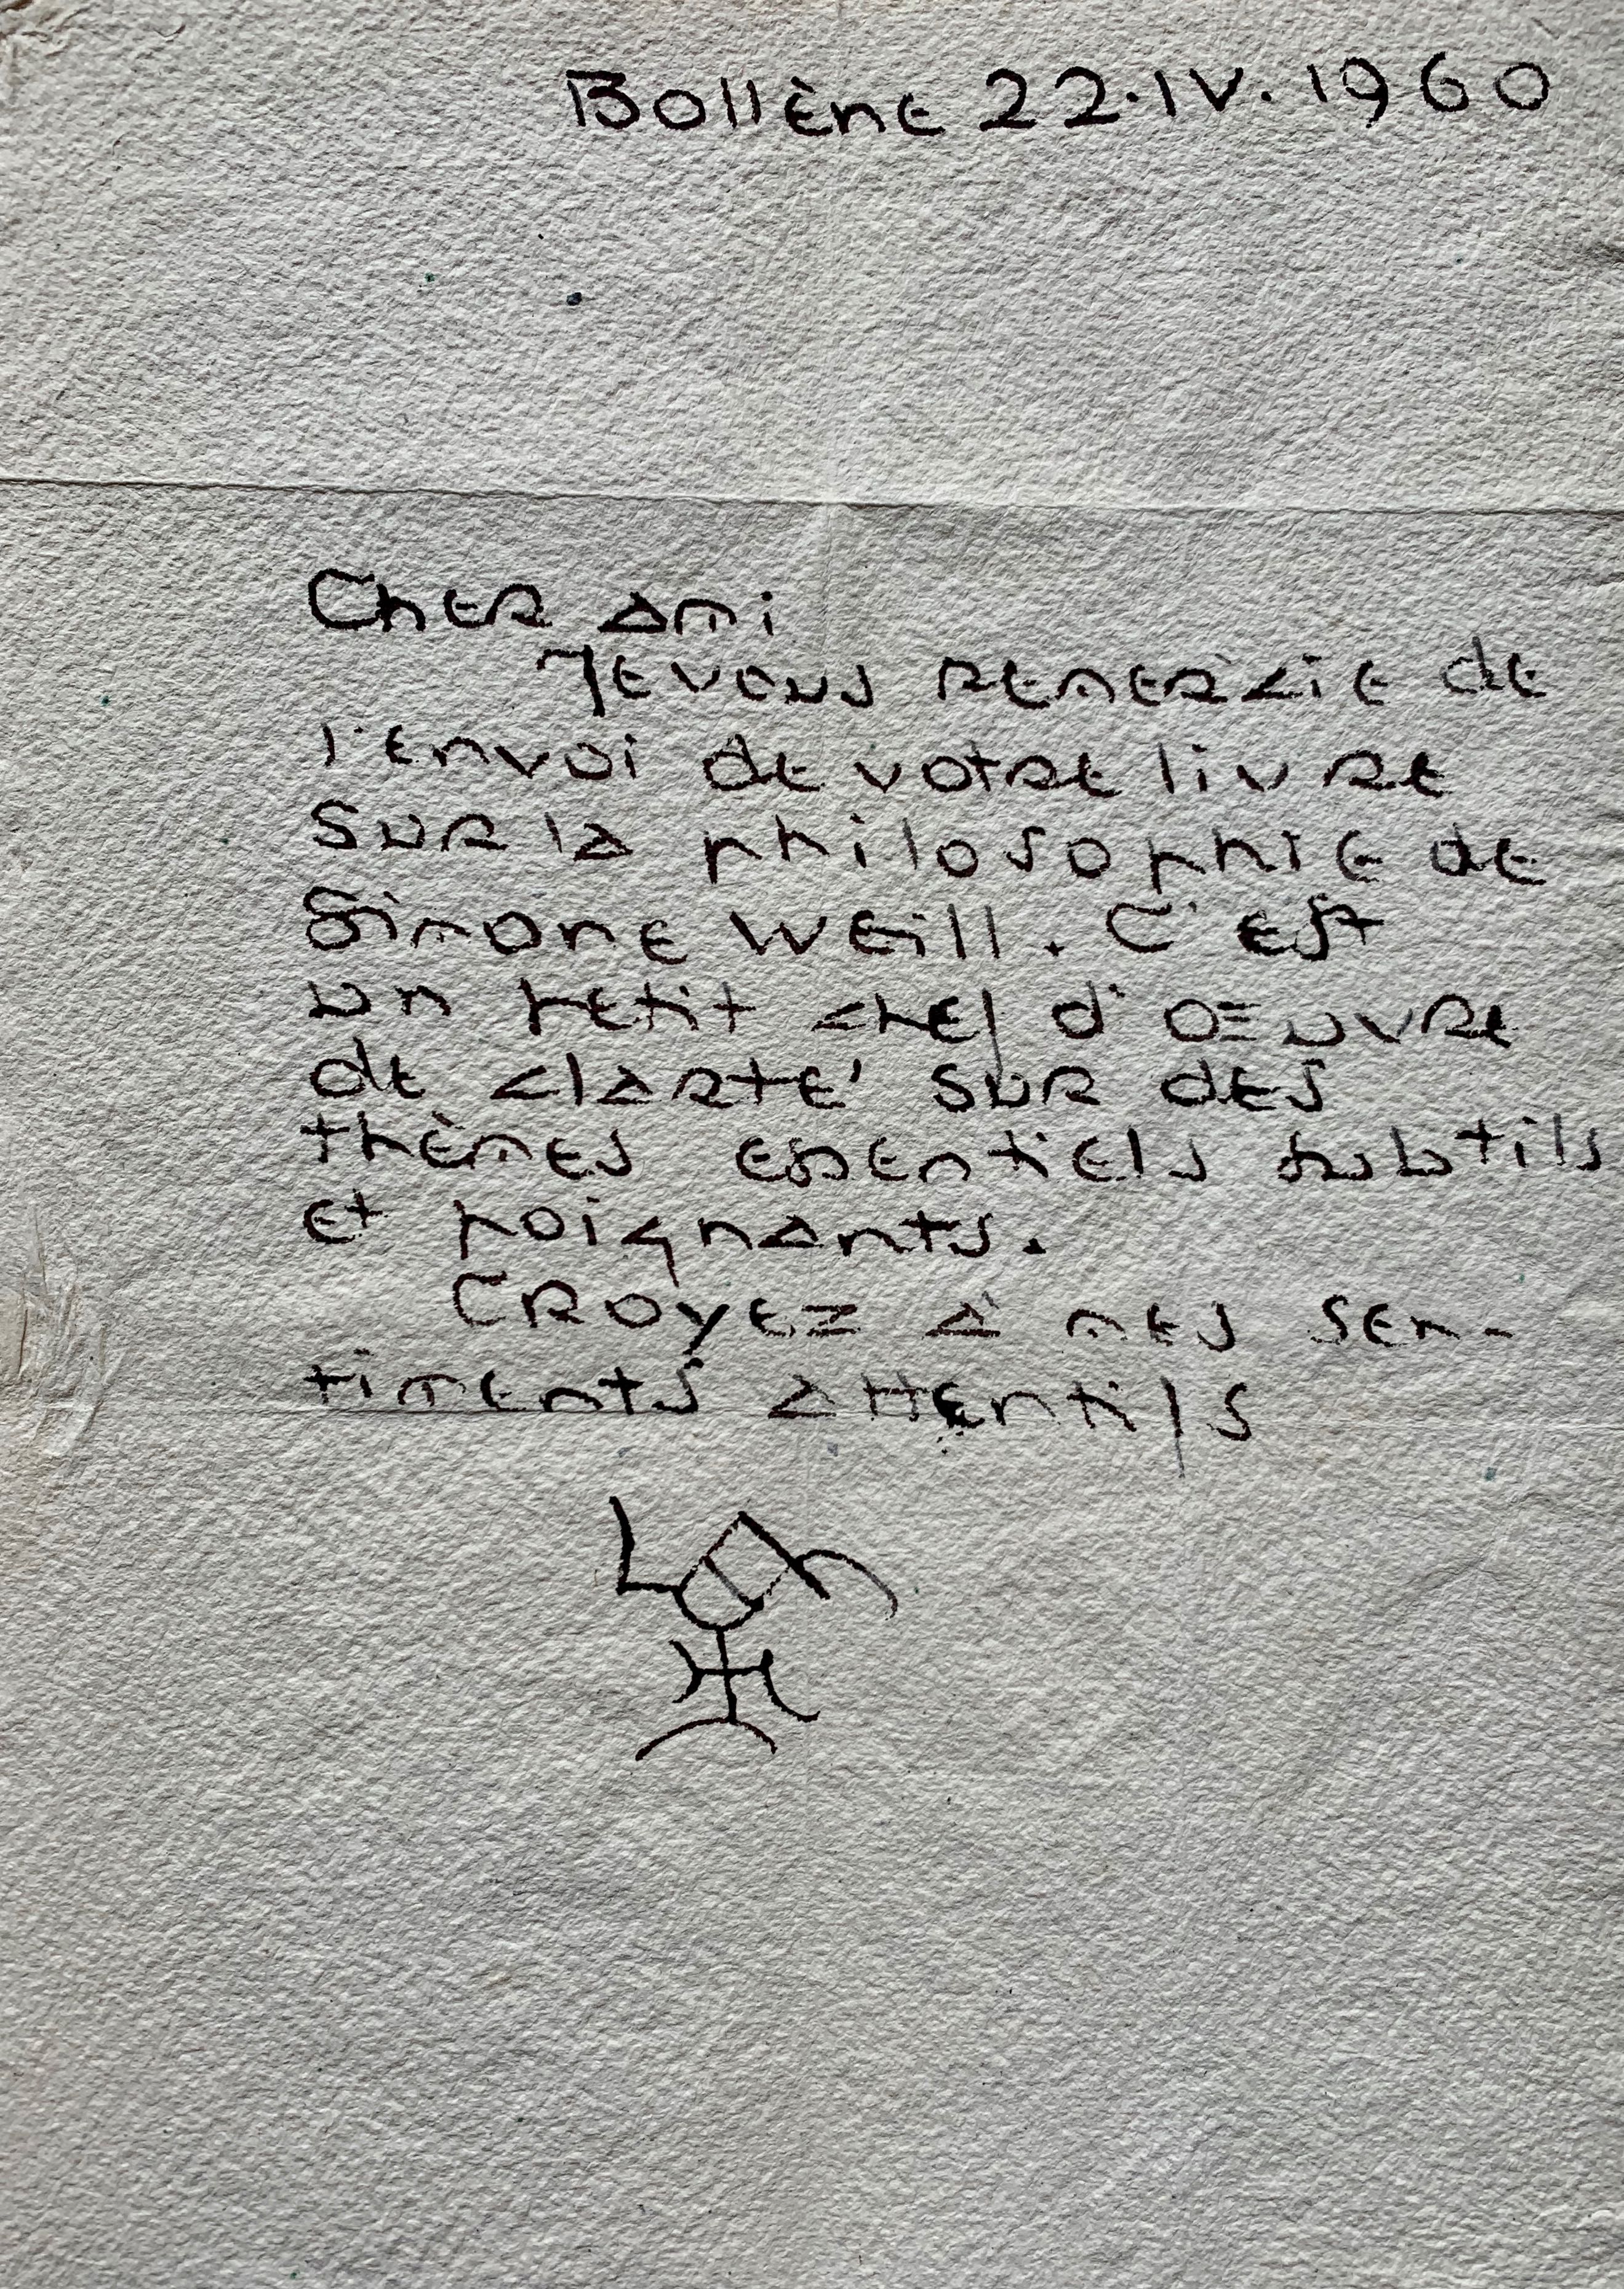 Bollène 22.IV.1960
Cher ami
Je vous remercie de
l'envoi de votre livre
sur la philosophie de
Simone Weill. C'est
un petit chef d'oeuvre
de clarté sur des
thèmes essentiels subtils
et poignants.
Croyez à mes sen-
timents attentifs